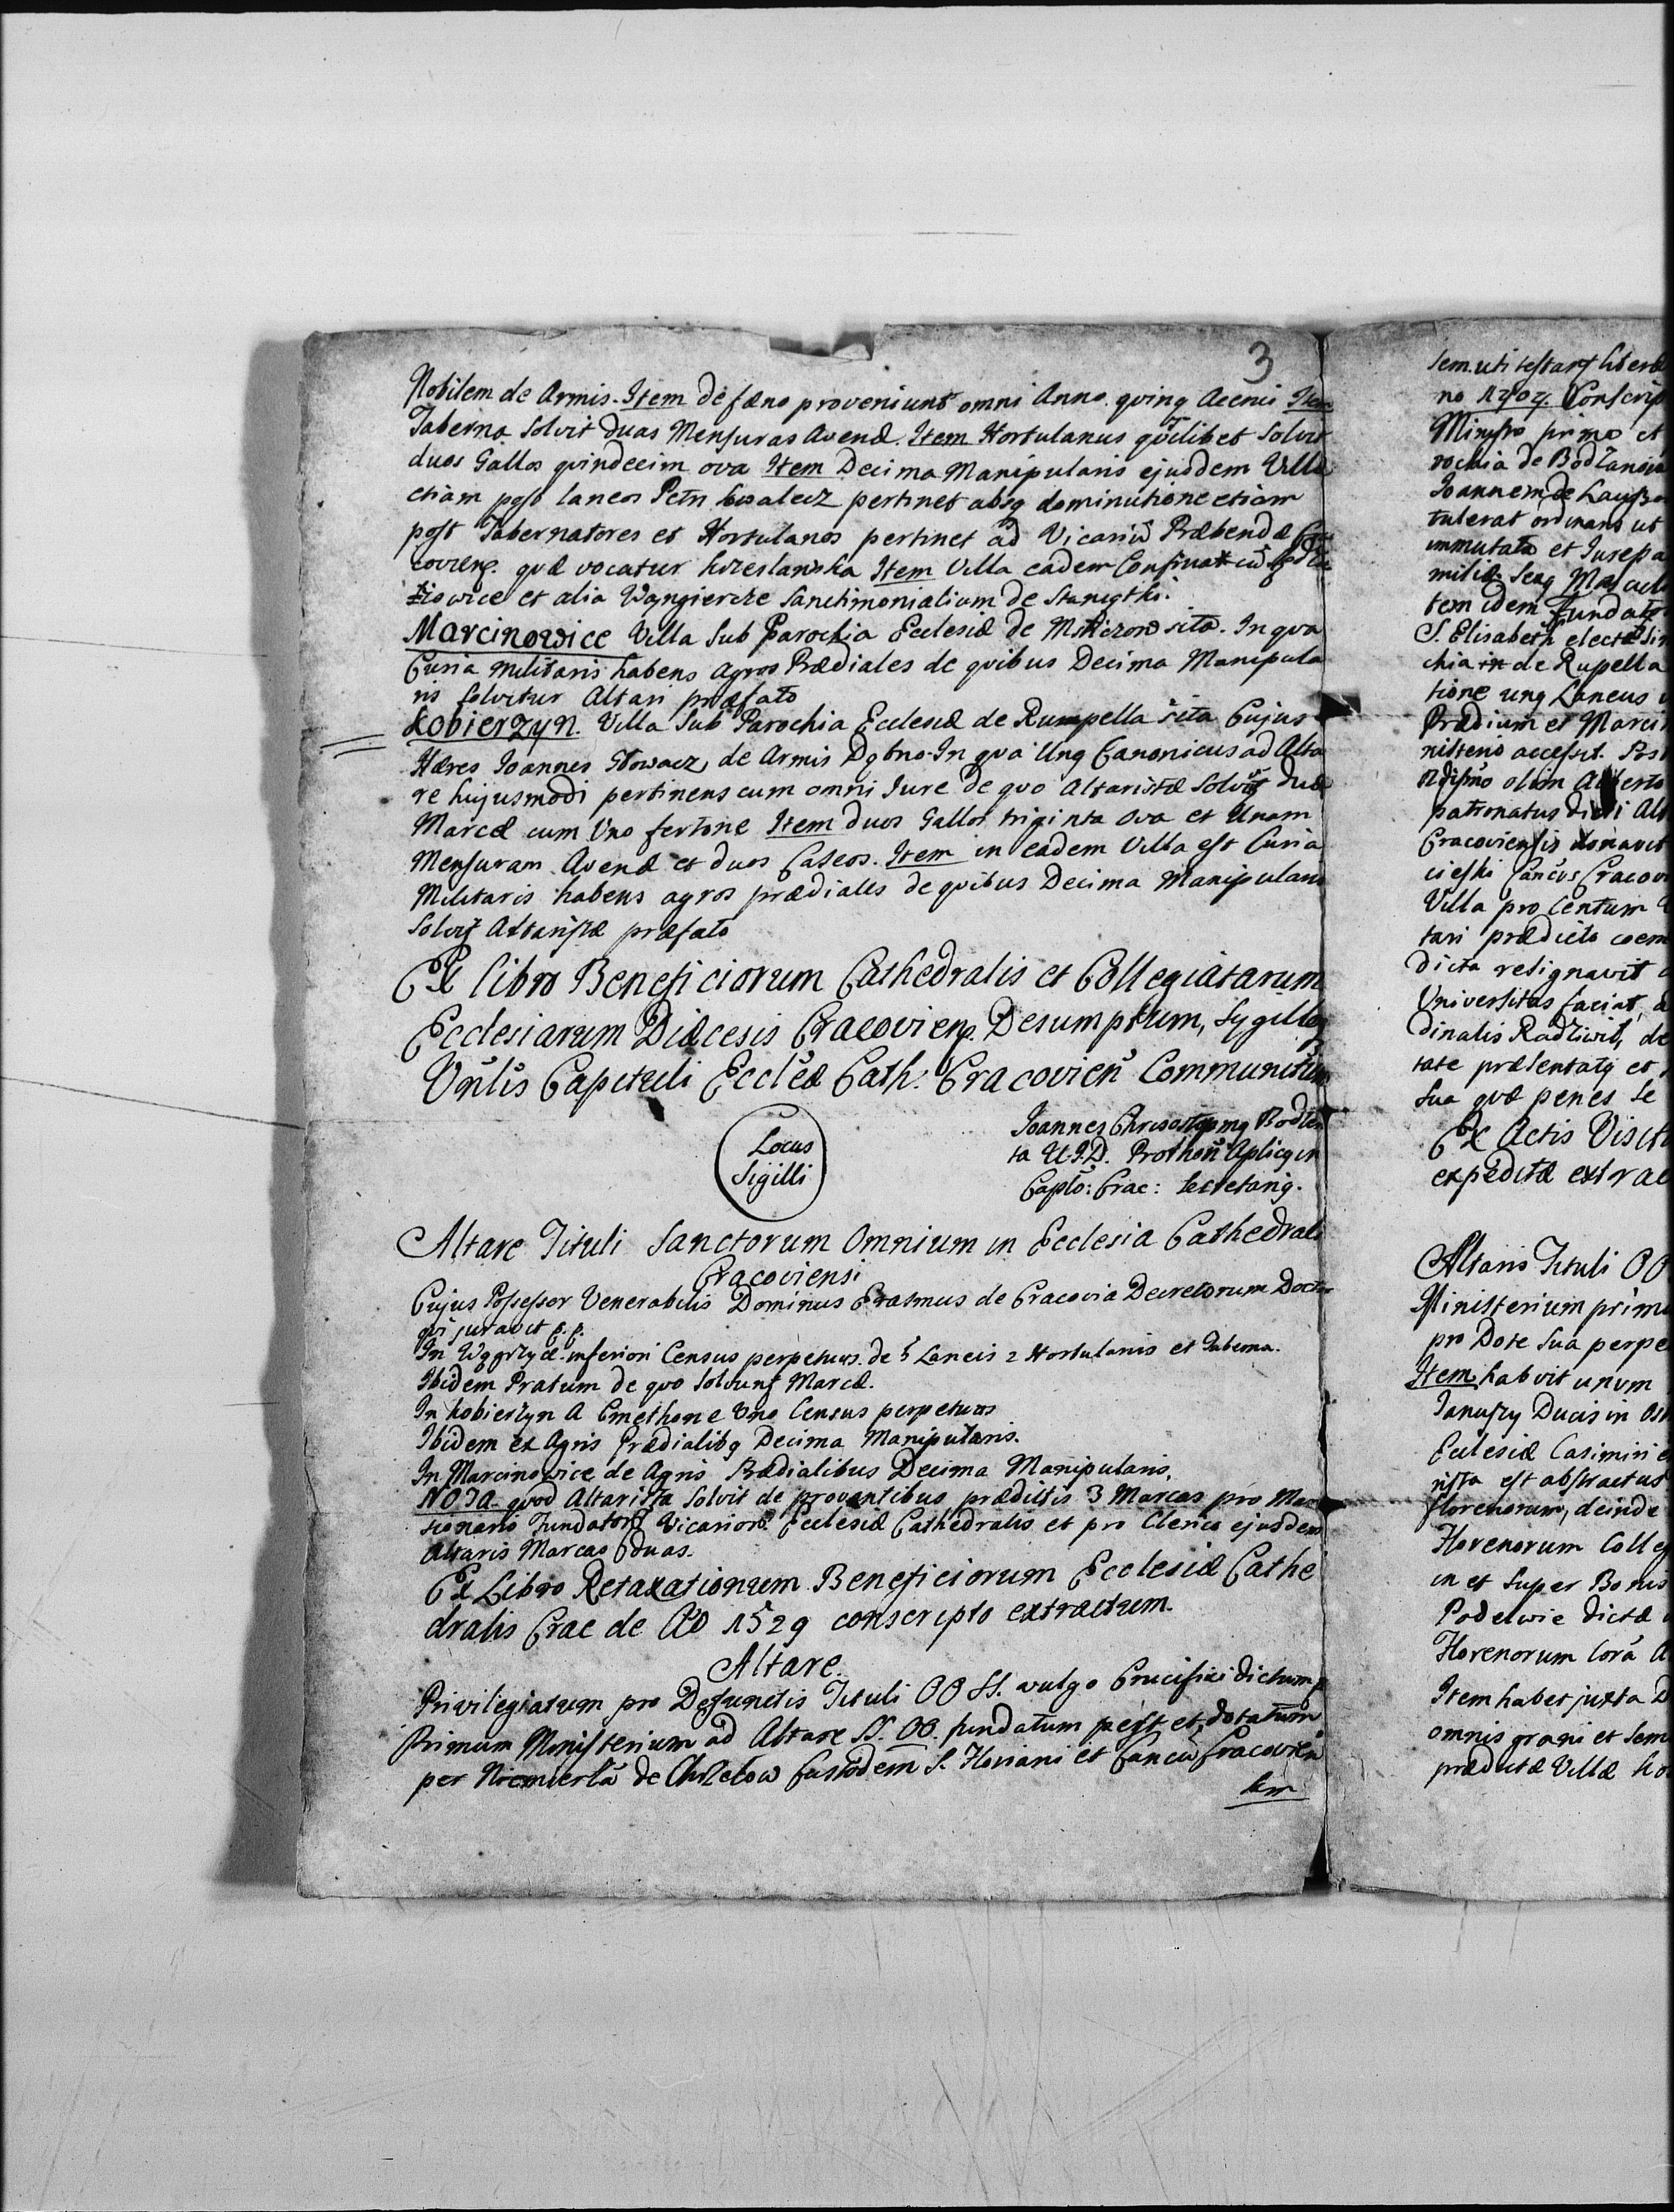 3
Nobilem de Armis. Item de fæno proveniunt omni Anno quinq Acervi Item
Taberna Solvit duas Mensuras Avenæ. Item Hortulanus quilibet Solvit
duos Gallos quindecim ova Item Decima Manipularis ejusdem Villæ
etiam post laneos Petri Kowalecz pertinet absq dominutione etiam
post Tabernatores et Hortulanos pertinet ad Vicariũ Præbendæ Cra
coviens. quæ vocatur Krzeslawska Item Villa eadem Confinat cũ
ziowice et alia Wangiercze Sanctimonialium de Staniathi.
Marcinowice Villa Sub Parochia Ecclesiæ de Msticzow sita. In qua
Curia Militaris habens agros Prædiales de quibus Decima Manipula
ris solvitur Altari præfato
Kobierzyn. Villa Sub Parochia Ecclesiæ de Rumpella sita Cujus
Hæres Joannes Słowacz, de Armis Dębno. In qua Unq Canonicus ad Alta
re hujusmodi pertinens cum omni Jure de quo Altaristæ Solvit duæ
Marcæ cum Uno fertone Item duos Gallos triginta Ova et Unam
Mensuram Avenæ et duos Caseos. Item in eadem Villa est Curia
Militaris habens agros prædiales de quibus Decima Manipularis
Solvit Altaristæ præfato
Ex libro Beneficiorum Cathedralis et Collegiatarum
Ecclesiarum Diæcesis Cracoviens. Desumptum, Sygilloq
Vñlis Capituli Eccleæ Cath: Cracovieñ Communitum
Locus
Sigilli
Joannes Chrisostomq Bodzen
ta U.J.D. Prothoñ Aplicq in
Caplo: Crac: Secretariq.
Altare Tituli Sanctorum Omnium in Ecclesia Cathedrali
Cracoviensi
Cujus Possessor Venerabilis Dominus Erasmus de Cracovia Decretorum Doctor
qui juravit p.p.
In Węgrzyce inferiori Census perpetuus de 5 Laneis 2 Hortulanis et Taberna.
Ibidem Pratum de quo Solvunt Marcæ.
In Kobierzyn A Cmethone Uno Census perpetuus
Ibidem ex Agris Prædialibq Decima Manipularis.
In Marcinowice de Agris Prædialibus Decima Manipularis.
NOTA quod Altarista Solvit de proventibus prædictis 3 Marcas pro Man
sionario Fundatore Vicarior Ecclesiæ Cathedralis et pro Clerico ejusdem
Altaris Marcas duas.
Ex Libro Retaxationum Beneficiorum Ecclesiæ Cathe
dralis Crac de Ao 1529 conscripto extractum.
Altare
Privilegiatum pro Defunctis Tituli OO SS. vulgo Crucifixi dictum
Primum Ministerium ad Altare SS. OO. fundatum est et dotatum
per Niemierzã de Chrzelow Custodem S. Floriani et Cancũ Cracovien
sem
sem uti testat liberæ
no 1707. Conscrip
Ministro primo et
rochia de Bodzanow
Joannem de
tulerat ordinans ut
immutata et Jurepa
miliæ Seaq Mascul
tem idem Fundator
S. Elisabeth electæ
chia in de Rupella
tione unq Laneus
Prædium et Marci
nisterio accessit. Post
olim Alberto
patronatus dicti Alt
Cracoviensis donavit
cieski Cancus Cracov
Villa pro Centum
tari prædicto coem
dicta resignavit
Universitas faciat, a
dinalis Radziwil, de
tate præsentatq et
Sua quæ penes Se
Ex Actis Visit
expeditæ extrac
Altaris Tituli OO
Ministerium prim
pro Dote Sua perpe
Item habuit unum
Janussy Ducis in Os
Ecclesiæ Casimiri
rista est abstractus
florenorum, deinde
Florenorum Colleg
in et Super Bonis
Podelwie dictæ
Florenorum Corã
Item habet juxta D
omnis grani et Sem
prædictæ Villæ Ko